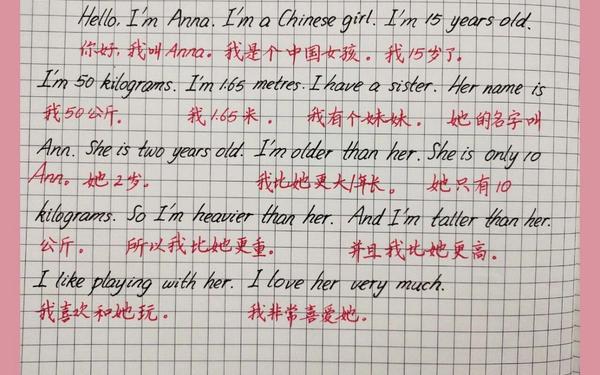 Hello, I'm Anna. I'm a Chinese girl. I'm 15 years old.
你好, 我叫Anna。我是个中国女孩。我15岁了。
I'm 50 kilograms. I'm 1.65 metres. I have a sister. Her name is
我50公斤。 我1.65米。 我有个妹妹。 她的名字叫
Ann. She is two years old. I'm older than her. She is only 10
Ann。她2岁。 我比她更大/年长。 她只有10
kilograms. So I'm heavier than her. And I'm taller than her.
公斤。 所以我比她更重。 并且我比她更高。
I like playing with her. I love her very much.
我喜欢和她玩。 我非常喜爱她。